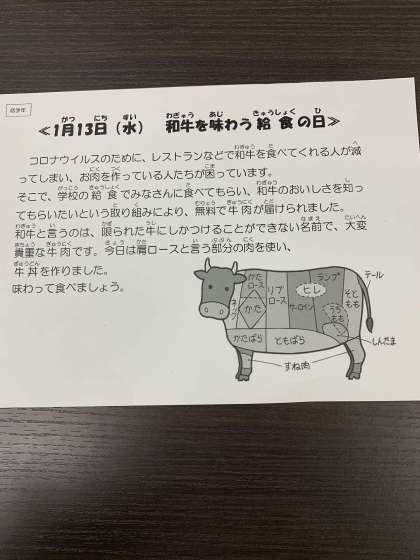 低学年
≪1月13日（水）　和牛を味わう給食の日≫
コロナウイルスのために、レストランなどで和牛を食べてくれる人が減
ってしまい、お肉を作っている人たちが困っています。
そこで、学校の給食でみなさんに食べてもらい、和牛のおいしさを知っ
てもらいたいという取り組みにより、無料で牛肉が届けられました。
和牛と言うのは、限られた牛にしかつけることができない名前で、大変
貴重な牛肉です。今日は肩ロースと言う部分の肉を使い、
牛丼を作りました。
味わって食べましょう。
ネック
かたロース
かた
リブロース
サーロイン
ヒレ
ランプ
うちもも
そともも
テール
かたばら
ともばら
しんたま
すね肉